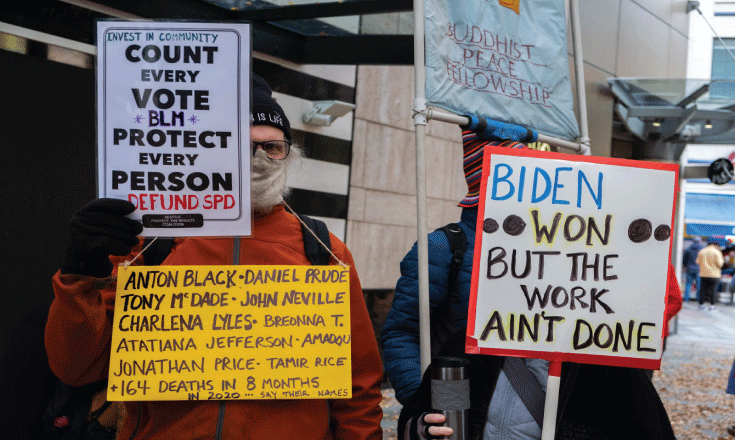 INVEST IN COMMUNITY
COUNT
EVERY
VOTE
* BLM *
PROTECT
EVERY
PERSON
DEFUND SPD
SEATTLE
PROTECT THE RESULTS
COALITION
IS LIFE
ANTON BLACK • DANIEL PRUDE
TONY McDADE • JOHN NEVILLE
CHARLENA LYLES • BREONNA T.
ATATIANA JEFFERSON • AMADOU
JONATHAN PRICE • TAMIR RICE
+164 DEATHS IN 8 MONTHS
IN 2020 ... SAY THEIR NAMES
BUDDHIST
PEACE
FELLOWSHIP
BIDEN
WON
BUT THE
WORK
AIN'T DONE